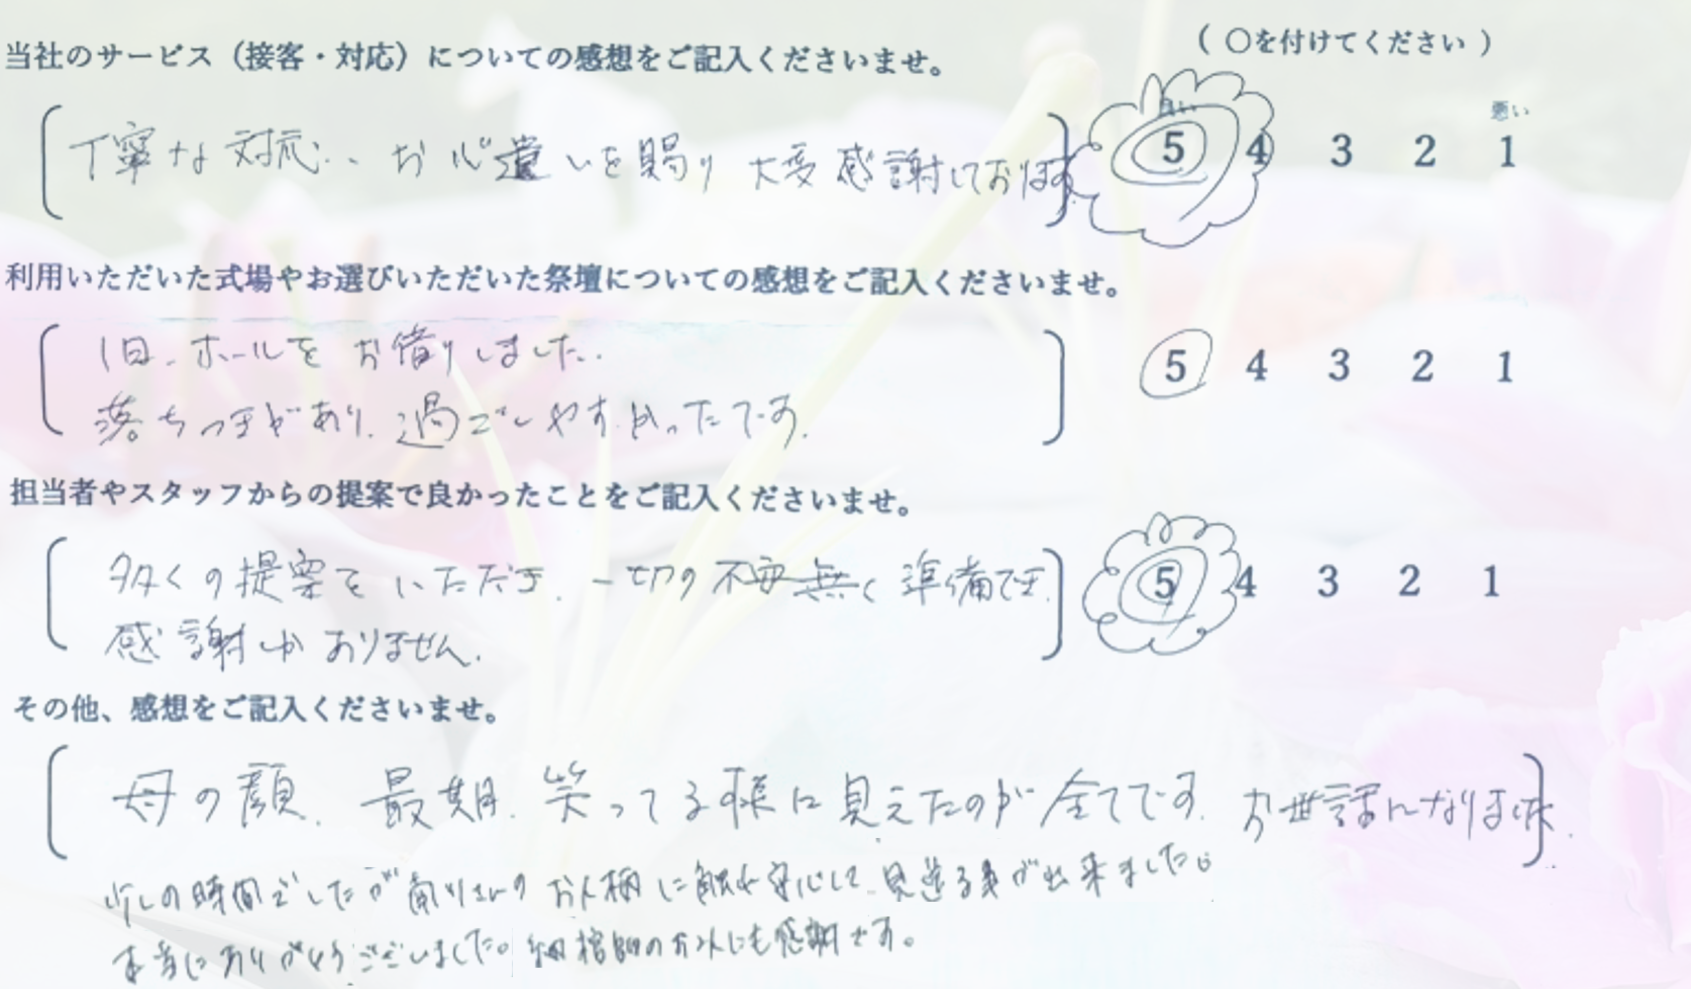 当社のサービス（接客・対応）についての感想をご記入くださいませ。
（ 〇を付けてください ）
良い 悪い
丁寧な対応、お心遣いを賜り 大変感謝しております
5 4 3 2 1
利用いただいた式場やお選びいただいた祭壇についての感想をご記入くださいませ。
1日、ホールを お借りしました。
5 4 3 2 1
落ちつきがあり、過ごしやすかったです。
担当者やスタッフからの提案で良かったことをご記入くださいませ。
多くの提案をいただき、一切の不安無く 準備でき
5 4 3 2 1
感謝しかありません。
その他、感想をご記入くださいませ。
母の顔、最期、笑ってる様に見えたのが全てです。お世話になりました。
少しの時間でしたが のお人柄に触れ安心して見送る事が出来ました。
本当にありがとうございました。納棺師のお人にも感謝です。